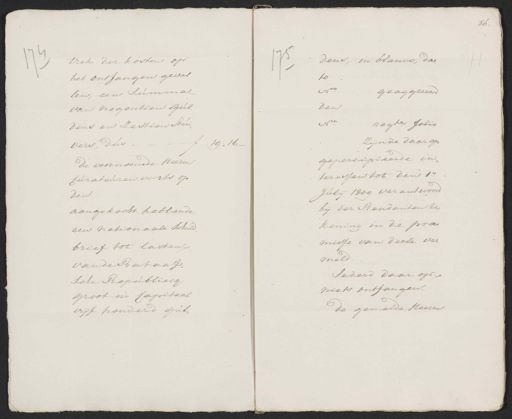 174
trek der kosten op
het ontfangen geval
len, eene Summa
van negentien gul
dens en Zestien Stui
vers, dus - - - f 19.16 -
De voornoemde
op
den
aangekocht hebbende
een nationaale Schuld
brief tot Lasten
van de Bataaf
sche Republiecq
groot in Capitaal
vijf honderd gul
175
dens, in blanco, da
to
No geaggreerd
den
No zegte folio
Zijnde daar op
gepercipieerde in
teressen tot den 1e
July 1800 verantwoord
by der Rendanten re
kening in die
messe van deele ver
meld
Sedert daar op
niets ontfangen
De gemelde Heeren